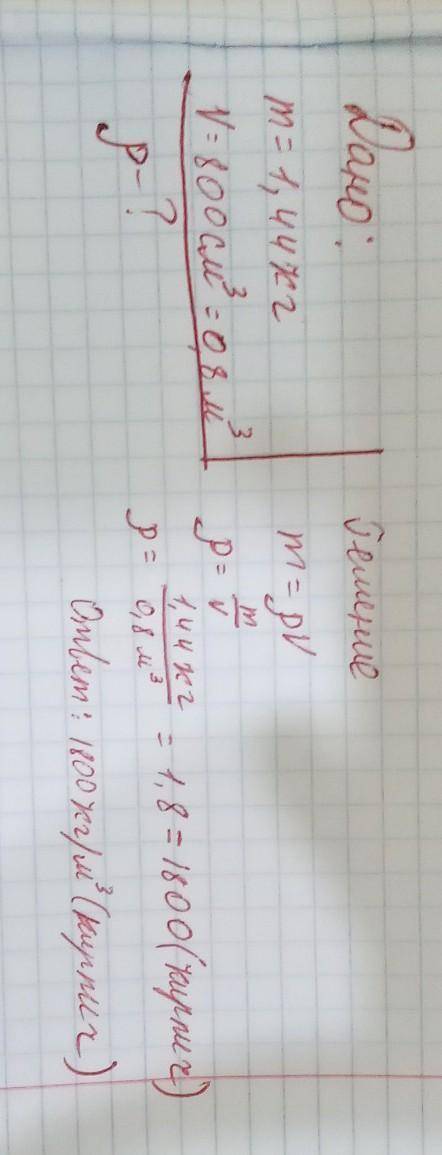 Дано:
m = 1,44 кг
V = 800 см³ = 0,8 м³
ρ - ?
Решение
m = ρV
ρ = m/V
ρ = 1,44 кг/0,8 м³ = 1,8 = 1800 (кирпич)
Ответ: 1800 кг/м³ (кирпич)